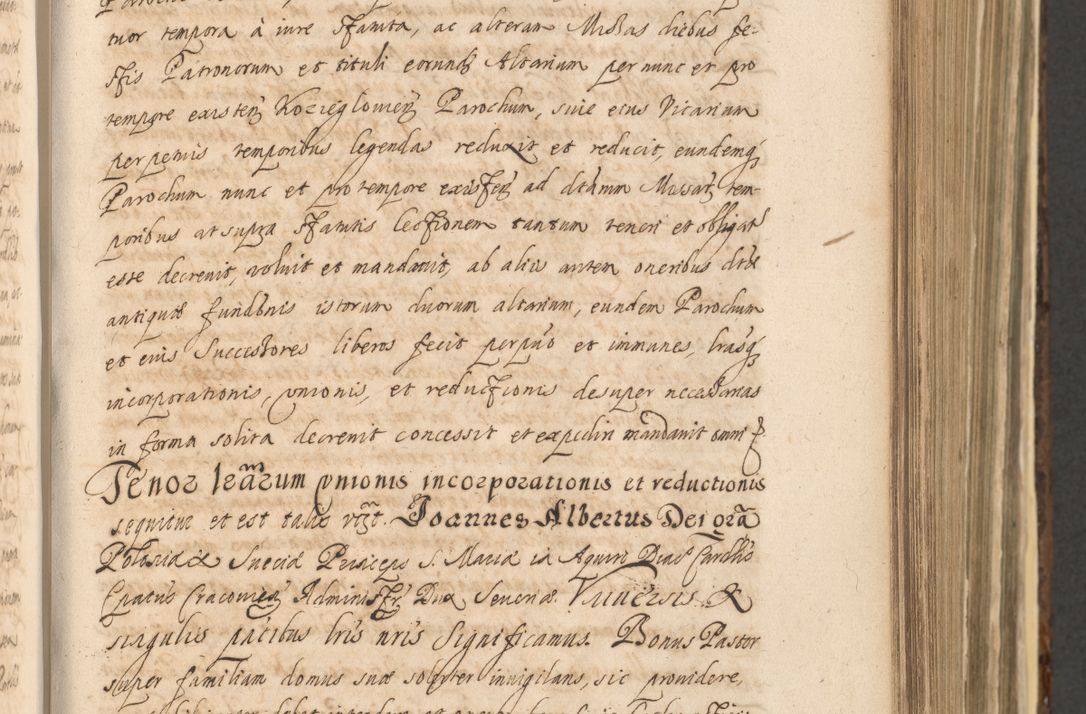 tuor tempora à iure statuta, ac alteram Missas diebus fe-
stis Patronorum et tituli eorundẽ Altarium per nunc et pro
tempore existeñ Kozieglowieñ Parochum, siue eius Vicarium
perpetuis temporibus legendas reduxit et reducit, eundemq̃
Parochum nunc et pro tempore existeñ ad dtãmm Missarũ tem-
poribus ut supra statutis lectionem tantum teneri et obligat
esse decrevit, voluit et mandavit, ab aliis autem oneribus dctæ
antiquæ fundõnis istorum duorum altarium, eundem Parochum
et eius Successores liberos fecit perpuo et immunes, lrasq̃
incorporationis, vnionis, et reductionis desuper necessarias
in forma solita decrevit concessit et expediri mandavit omni
Tenor lrãrum vnionis incorporationis et reductionis
sequitur et est talis vizt. Joannes Albertus Dei grã
Poloniæ & Sueciæ Princeps S. Mariæ in Aquiro Diac Cardlis
Epatus Cracovieñ Administr Dux Severiæ. Vniversis &
singulis pntibus lris nris Significamus. Bonus Pastor
super familiam domus suæ solerter invigilans, sic providere,